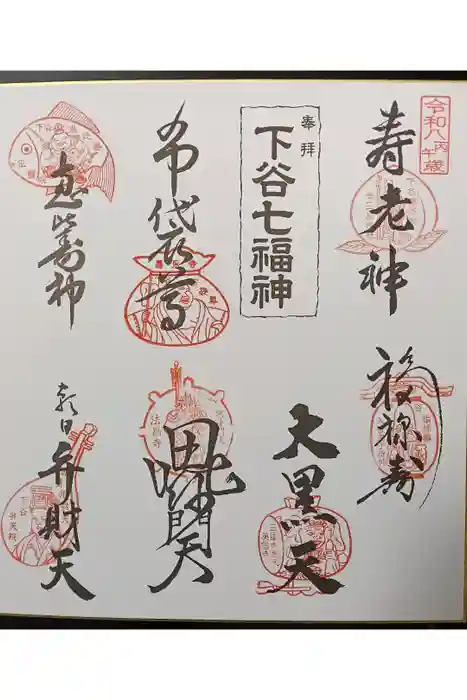 令和八丙午歳
寿老神
福禄寿
奉拝
下谷七福神
大黒天
布袋尊
毘沙門天
法昌寺
恵比寿神
朝日弁財天
下谷